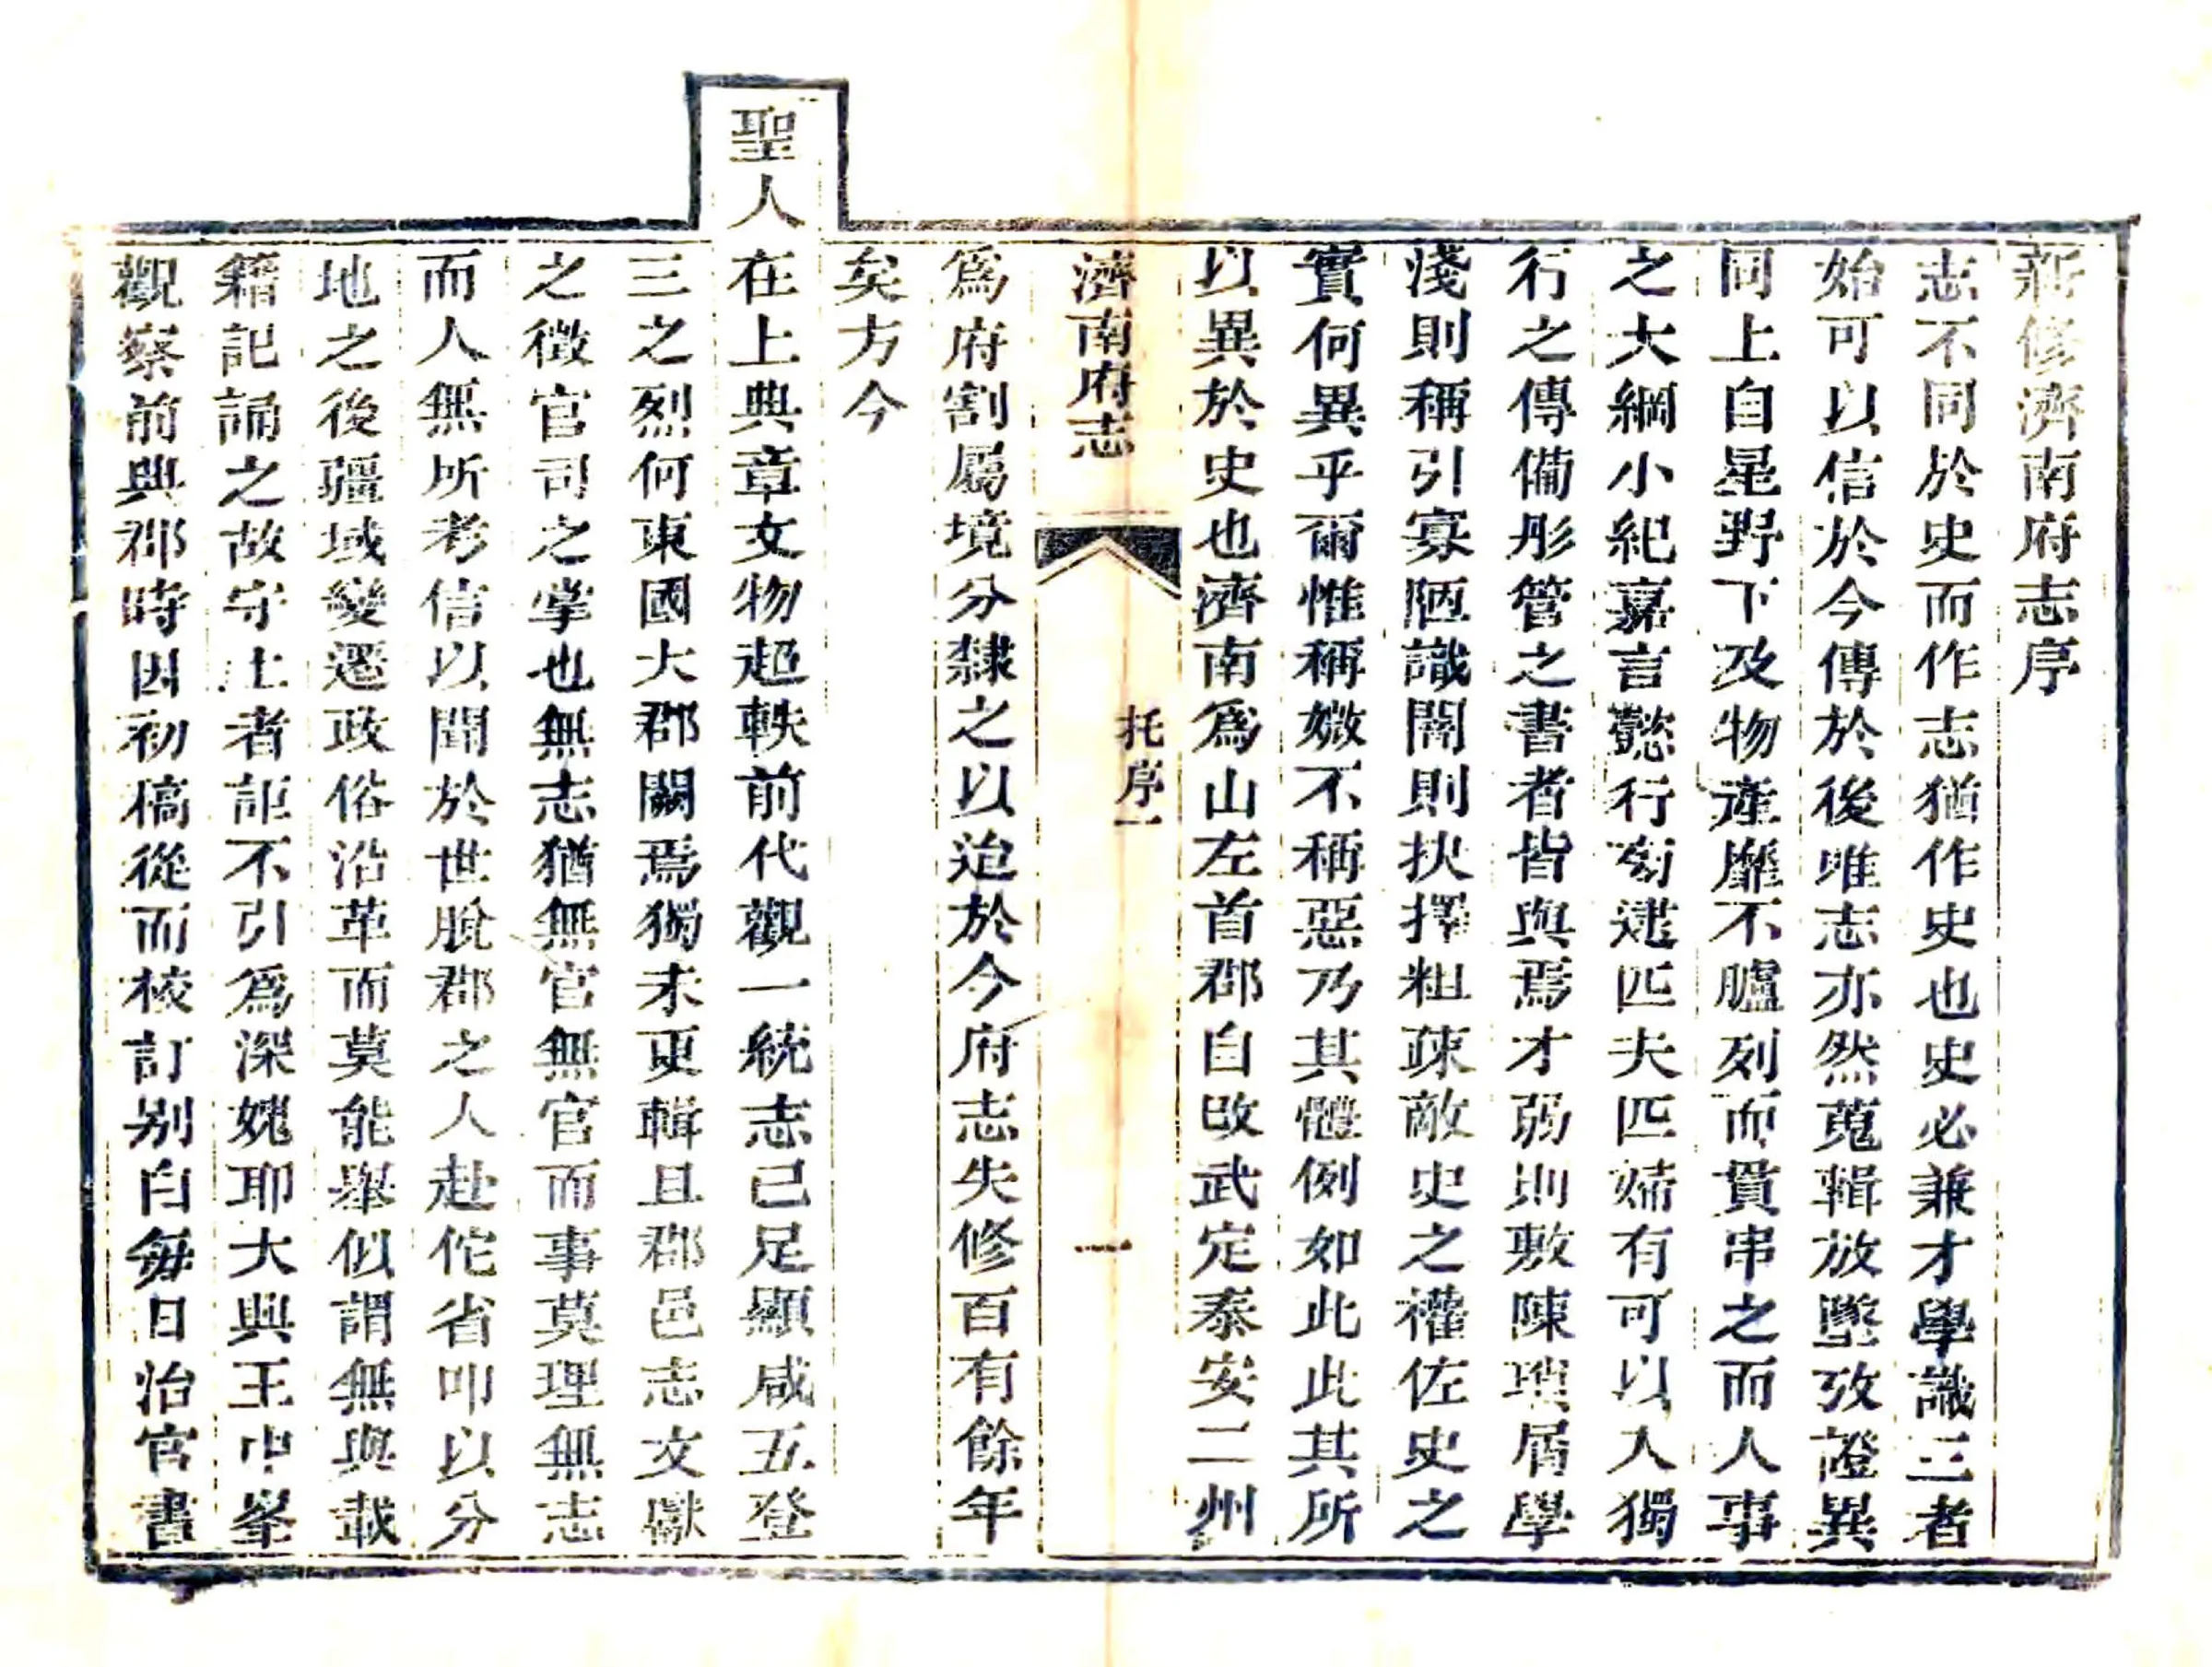 新修濟南府志序
志不同於史而作志猶作史也史必兼才學識三者
始可以信於今傳於後唯志亦然蒐輯放墜攷證異
同上自星野下及物產靡不臚列而貫串之而人事
之大綱小紀嘉言懿行匄逮匹夫匹婦有可以入獨
行之傳備彤管之書者皆與焉才弱則敷陳瑣屑學
淺則稱引寡陋識闇則抉擇粗疎敵史之權佐史之
實何異乎爾惟稱媺不稱惡乃其體例如此此其所
以異於史也濟南為山左首郡自改武定泰安二州
濟南府志
托序一
一
為府割屬境分隸之以迨於今府志失修百有餘年
矣方今
聖人在上典章文物超軼前代觀一統志已足顯咸五登
三之烈何東國大郡闕焉獨未更輯且郡邑志文獻
之徵官司之掌也無志猶無官無官而事莫理無志
而人無所考信以聞於世脫郡之人赴佗省叩以分
地之後疆域變遷政俗沿革而莫能舉似謂無與載
籍記誦之故守土者詎不引為深媿耶大興王中峯
觀察前典郡時因初稿從而校訂別白每日治官書